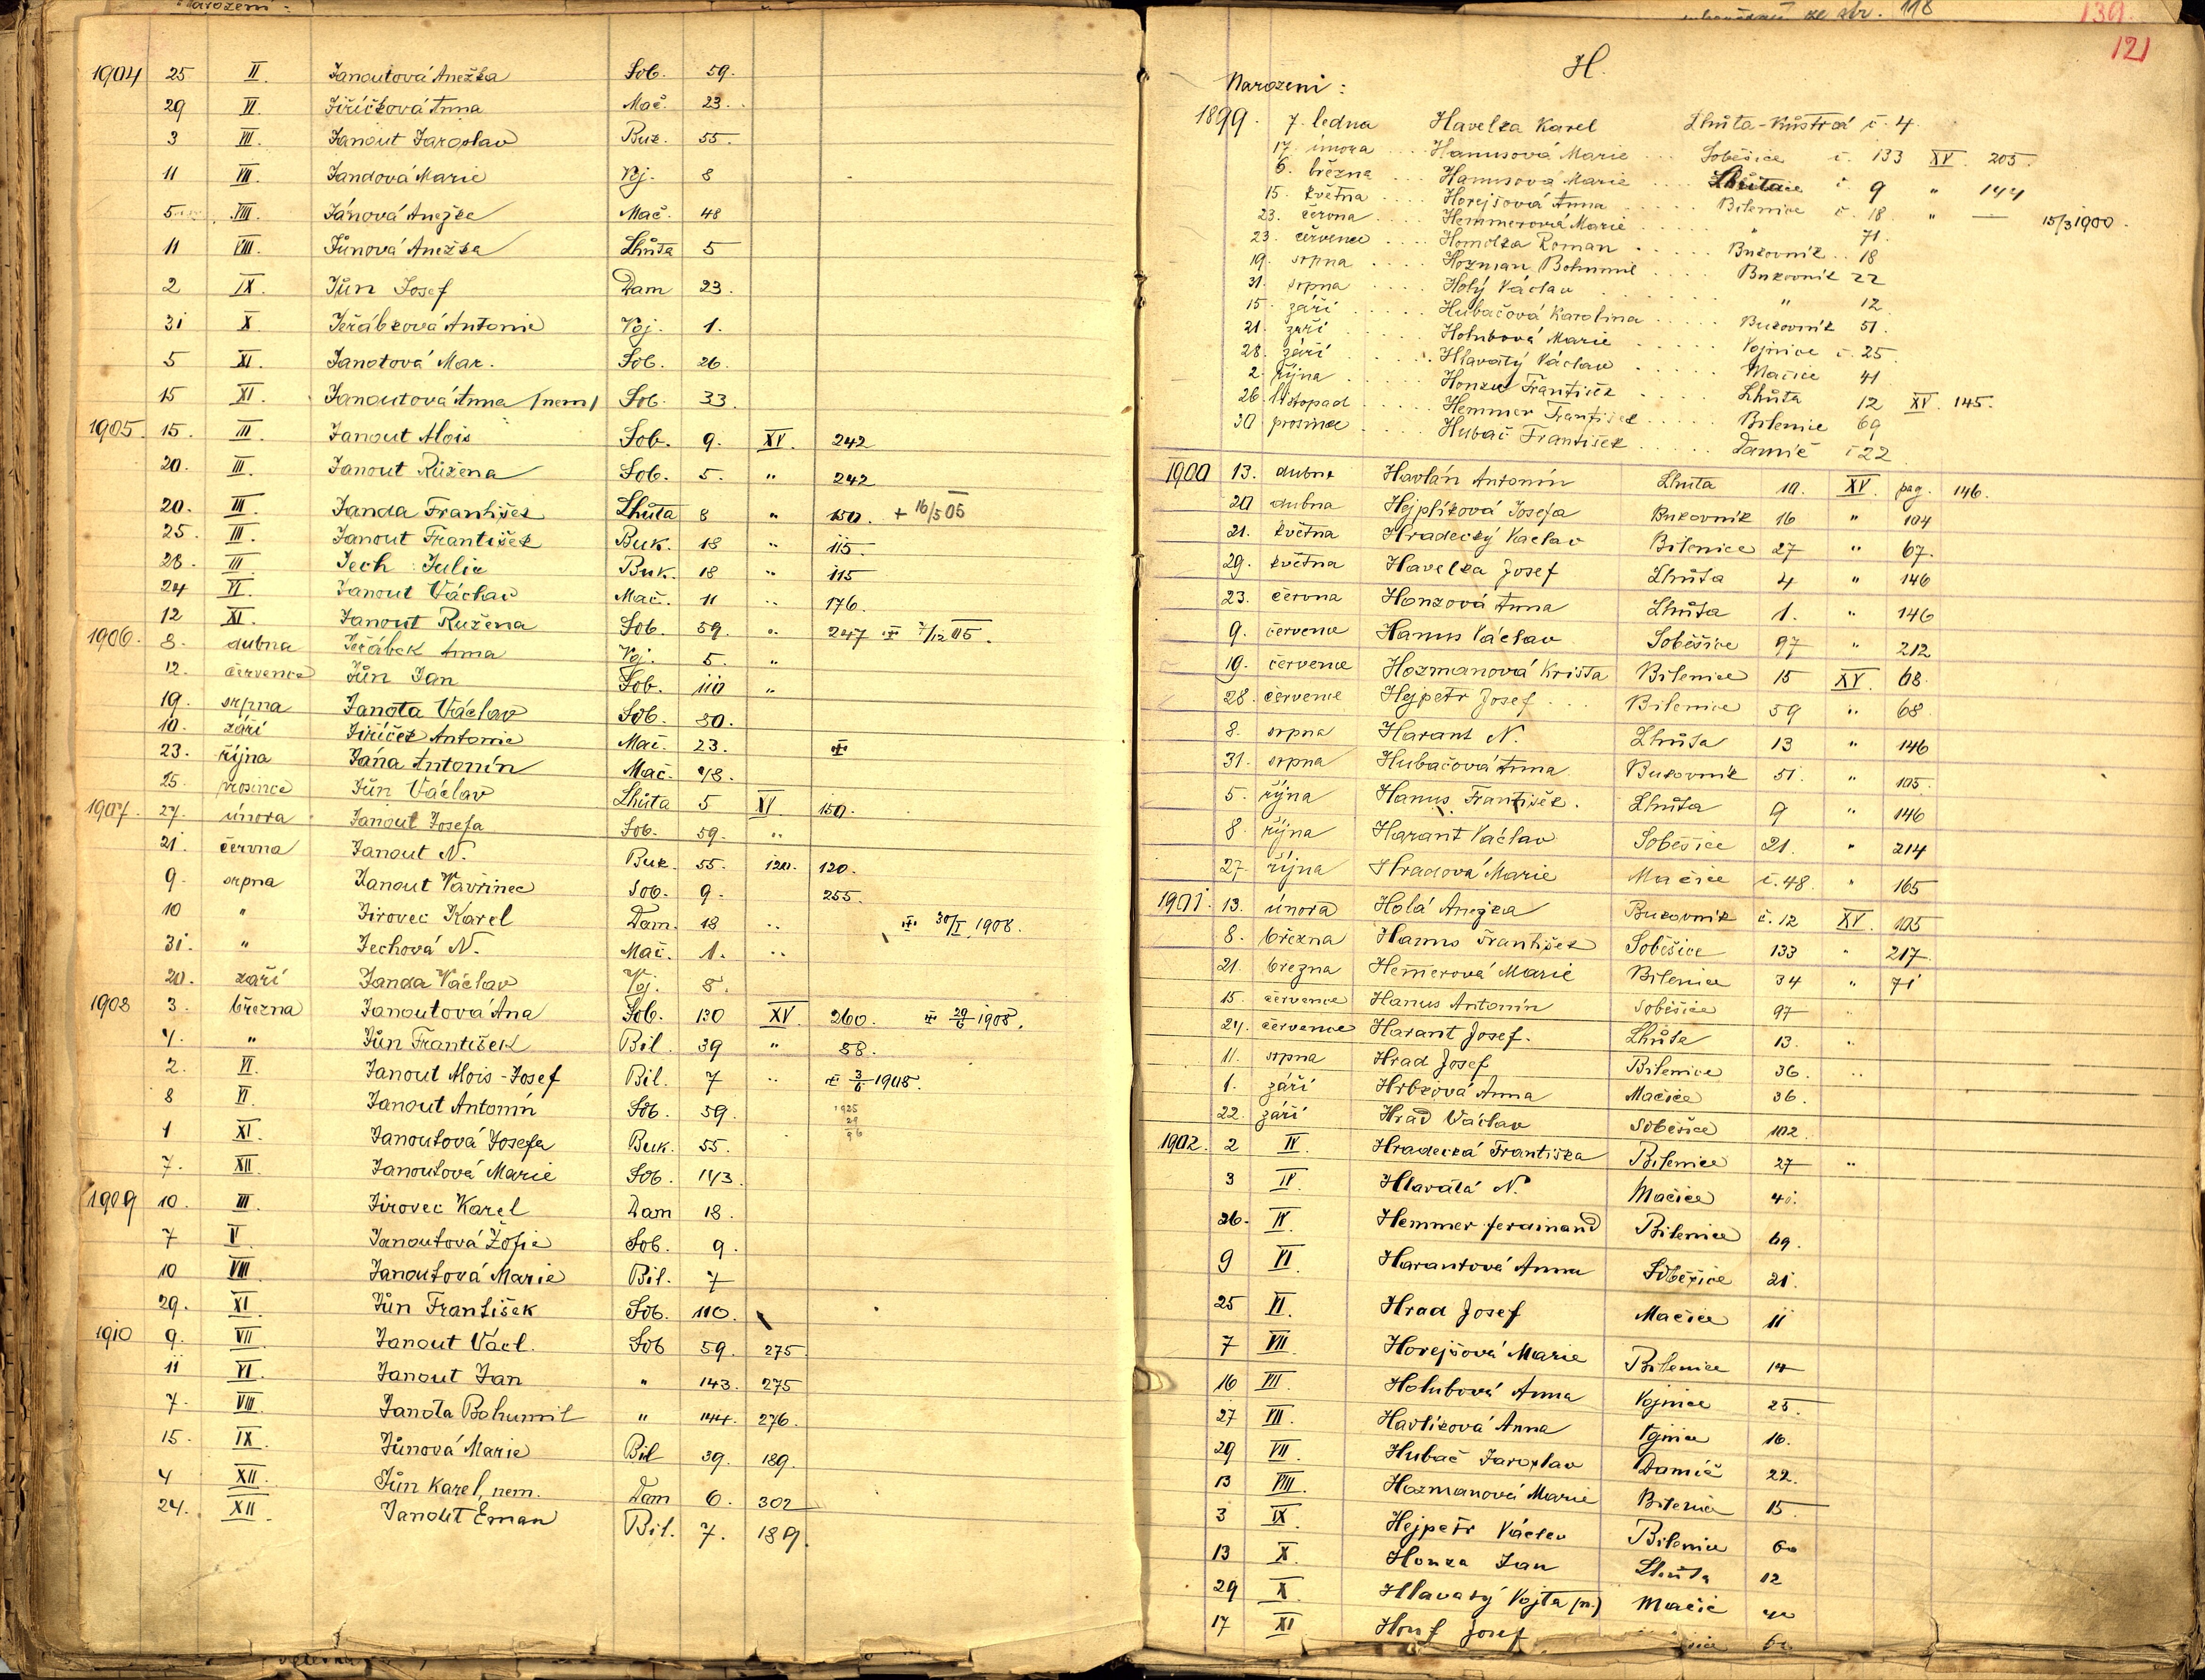 Narozeni:
1904 25 II. Janoutová Anežka Sob. 59.
29 VI. Jiříčková Anna Mač. 23.
3 VII. Janout Jaroslav Buk. 55.
11 VII. Jandová Marie Voj. 8
5 VIII. Jánová Anežka Mač. 48
11 VIII. Jůnová Anežka Lhůta 5
2 IX. Jůn Josef Dam 23.
31 X. Jeřábková Antonie Voj. 1.
5 XI. Janotová Mar. Sob. 26.
15 XI. Janoutová Anna (nem) Sob. 33.
1905. 15. III. Janout Alois Sob. 9. XV. 242
20. III. Janout Růžena Sob. 5. " 242
20. III. Janda František Lhůta 8 " 150. + 16/5 05
25. III. Janout František Buk. 18 " 115.
28. III. Jech Julie Buk. 18 " 115
24 VI. Janout Václav Mač. 11 " 176.
12 XI. Janout Růžena Sob. 59. " 247 7/12 05.
1906. 8. dubna Jeřábek Anna Voj. 5. "
12. července Jůn Jan Sob. 110 "
19. srpna Janota Václav Sob. 30.
10. září Jiříček Antonie Mač. 23.
23. října Jána Antonín Mač. 48.
25. prosince Jůn Václav Lhůta 5 XV. 150.
1907. 27. února Janout Josefa Sob. 59. "
21. června Janout N. Buk. 55. 120. 120.
9. srpna Janout Vavřinec Sob. 9. 255.
10 " Jirovec Karel Dam. 18 " 30/I 1908.
31. " Jechová N. Mač. 1. "
20. září Janda Václav Voj. 8.
1908 3. března Janoutová Ana Sob. 130 XV. 260. 29/6 1908.
7. " Jůn František Bil. 39 " 88.
2. VI. Janout Alois-Josef Bil. 7 " 3/6 1908.
8 VI. Janout Antonín Sob. 59.
1 XI. Janoutová Josefa Buk. 55.
7. XII. Janoutová Marie Sob. 143.
1909 10. III. Jirovec Karel Dam 18.
7 V. Janoutová Žofie Sob. 9.
10 VIII. Janoutová Marie Bil. 7
29. XI. Jůn František Sob. 110.
1910 9. VII Janout Václ. Sob 59. 275
11 VI. Janout Jan " 143. 275
7. VIII. Janota Bohumil " 144. 276.
15. IX. Jůnová Marie Bil 39. 189.
4 XII. Jůn Karel, nem. Dam 6. 302
24. XII. Janout Eman Bil. 7. 189.
ze str. 118
139.
121
H.
Narozeni:
1899. 7. ledna Havelka Karel Lhůta-Kůstrá č. 4.
17. února Hanusová Marie Soběšice č. 133 XV. 205.
6. března Hanusová Marie Lhůta č. 9 " 144
15. května Horejšová Anna Bílenice č. 18 " — 15/3 1900.
23. června Hemmerová Marie " 71.
23. července Homolka Roman Bukovník 18
19. srpna Hozman Bohumil Bukovník 22
31. srpna Holý Václav " 12
15. září Hubačová Karolina Bukovník 51.
21. září Holubová Marie Vojnice č. 25.
28. září Hlavatý Václav Mačice 41
2. října Honzu František Lhůta 12 XV. 145.
26. listopad Hemmer František Bílenice 69
30. prosince Hubač František Damíč č 22
1900 13. dubna Havlán Antonín Lhůta 10. XV. pag. 146.
20 dubna Hejplíková Josefa Bukovník 16 " 104
21. května Hradecký Václav Bílenice 27 " 67.
29. května Havelka Josef Lhůta 4 " 146
23. června Honzová Anna Lhůta 1. " 146
9. července Hanus Václav Soběšice 97 " 212
19. července Hozmanová Krista Bílenice 15 XV. 68.
28. července Hejpetr Josef Bílenice 59 " 68
8. srpna Harant N. Lhůta 13 " 146
31. srpna Hubačová Anna Bukovník 51. " 105.
5. října Hanus František. Lhůta 9 " 146
8. října Harant Václav Soběšice 21. " 214
27. října Hradová Marie Mačice č. 48. " 165
1901. 13. února Holá Anežka Bukovník č. 12 XV. 105
8. března Hanus František Soběšice 133 " 217.
21. března Hemerová Marie Bílenice 34 " 71
15. července Hanus Antonín Soběšice 97 "
24. července Harant Josef. Lhůta 13. "
11. srpna Hrad Josef Bílenice 36. "
1. září Hrbková Anna Mačice 36.
22. září Hrad Václav Soběšice 102.
1902. 2 IV. Hradecká Františka Bílenice 27 "
3 IV. Hlavatá N. Mačice 41.
26. IV. Hemmer Ferdinand Bílenice 69.
9 VI. Harantová Anna Soběšice 21.
25 VI. Hrad Josef Mačice 11
7 VII. Horejšová Marie Bílenice 14
16 VII. Holubová Anna Vojnice 25.
27 VII. Havlíková Anna Vojnice 16.
29 VII. Hubač Jaroslav Damíč 22.
13 VIII. Hozmanová Marie Bílenice 15.
3 IX. Hejpetr Václav Bílenice 60
13 X. Honza Jan Lhůta 12
29 X. Hlavatý Vojta (n.) Mačic
17 XI Josef